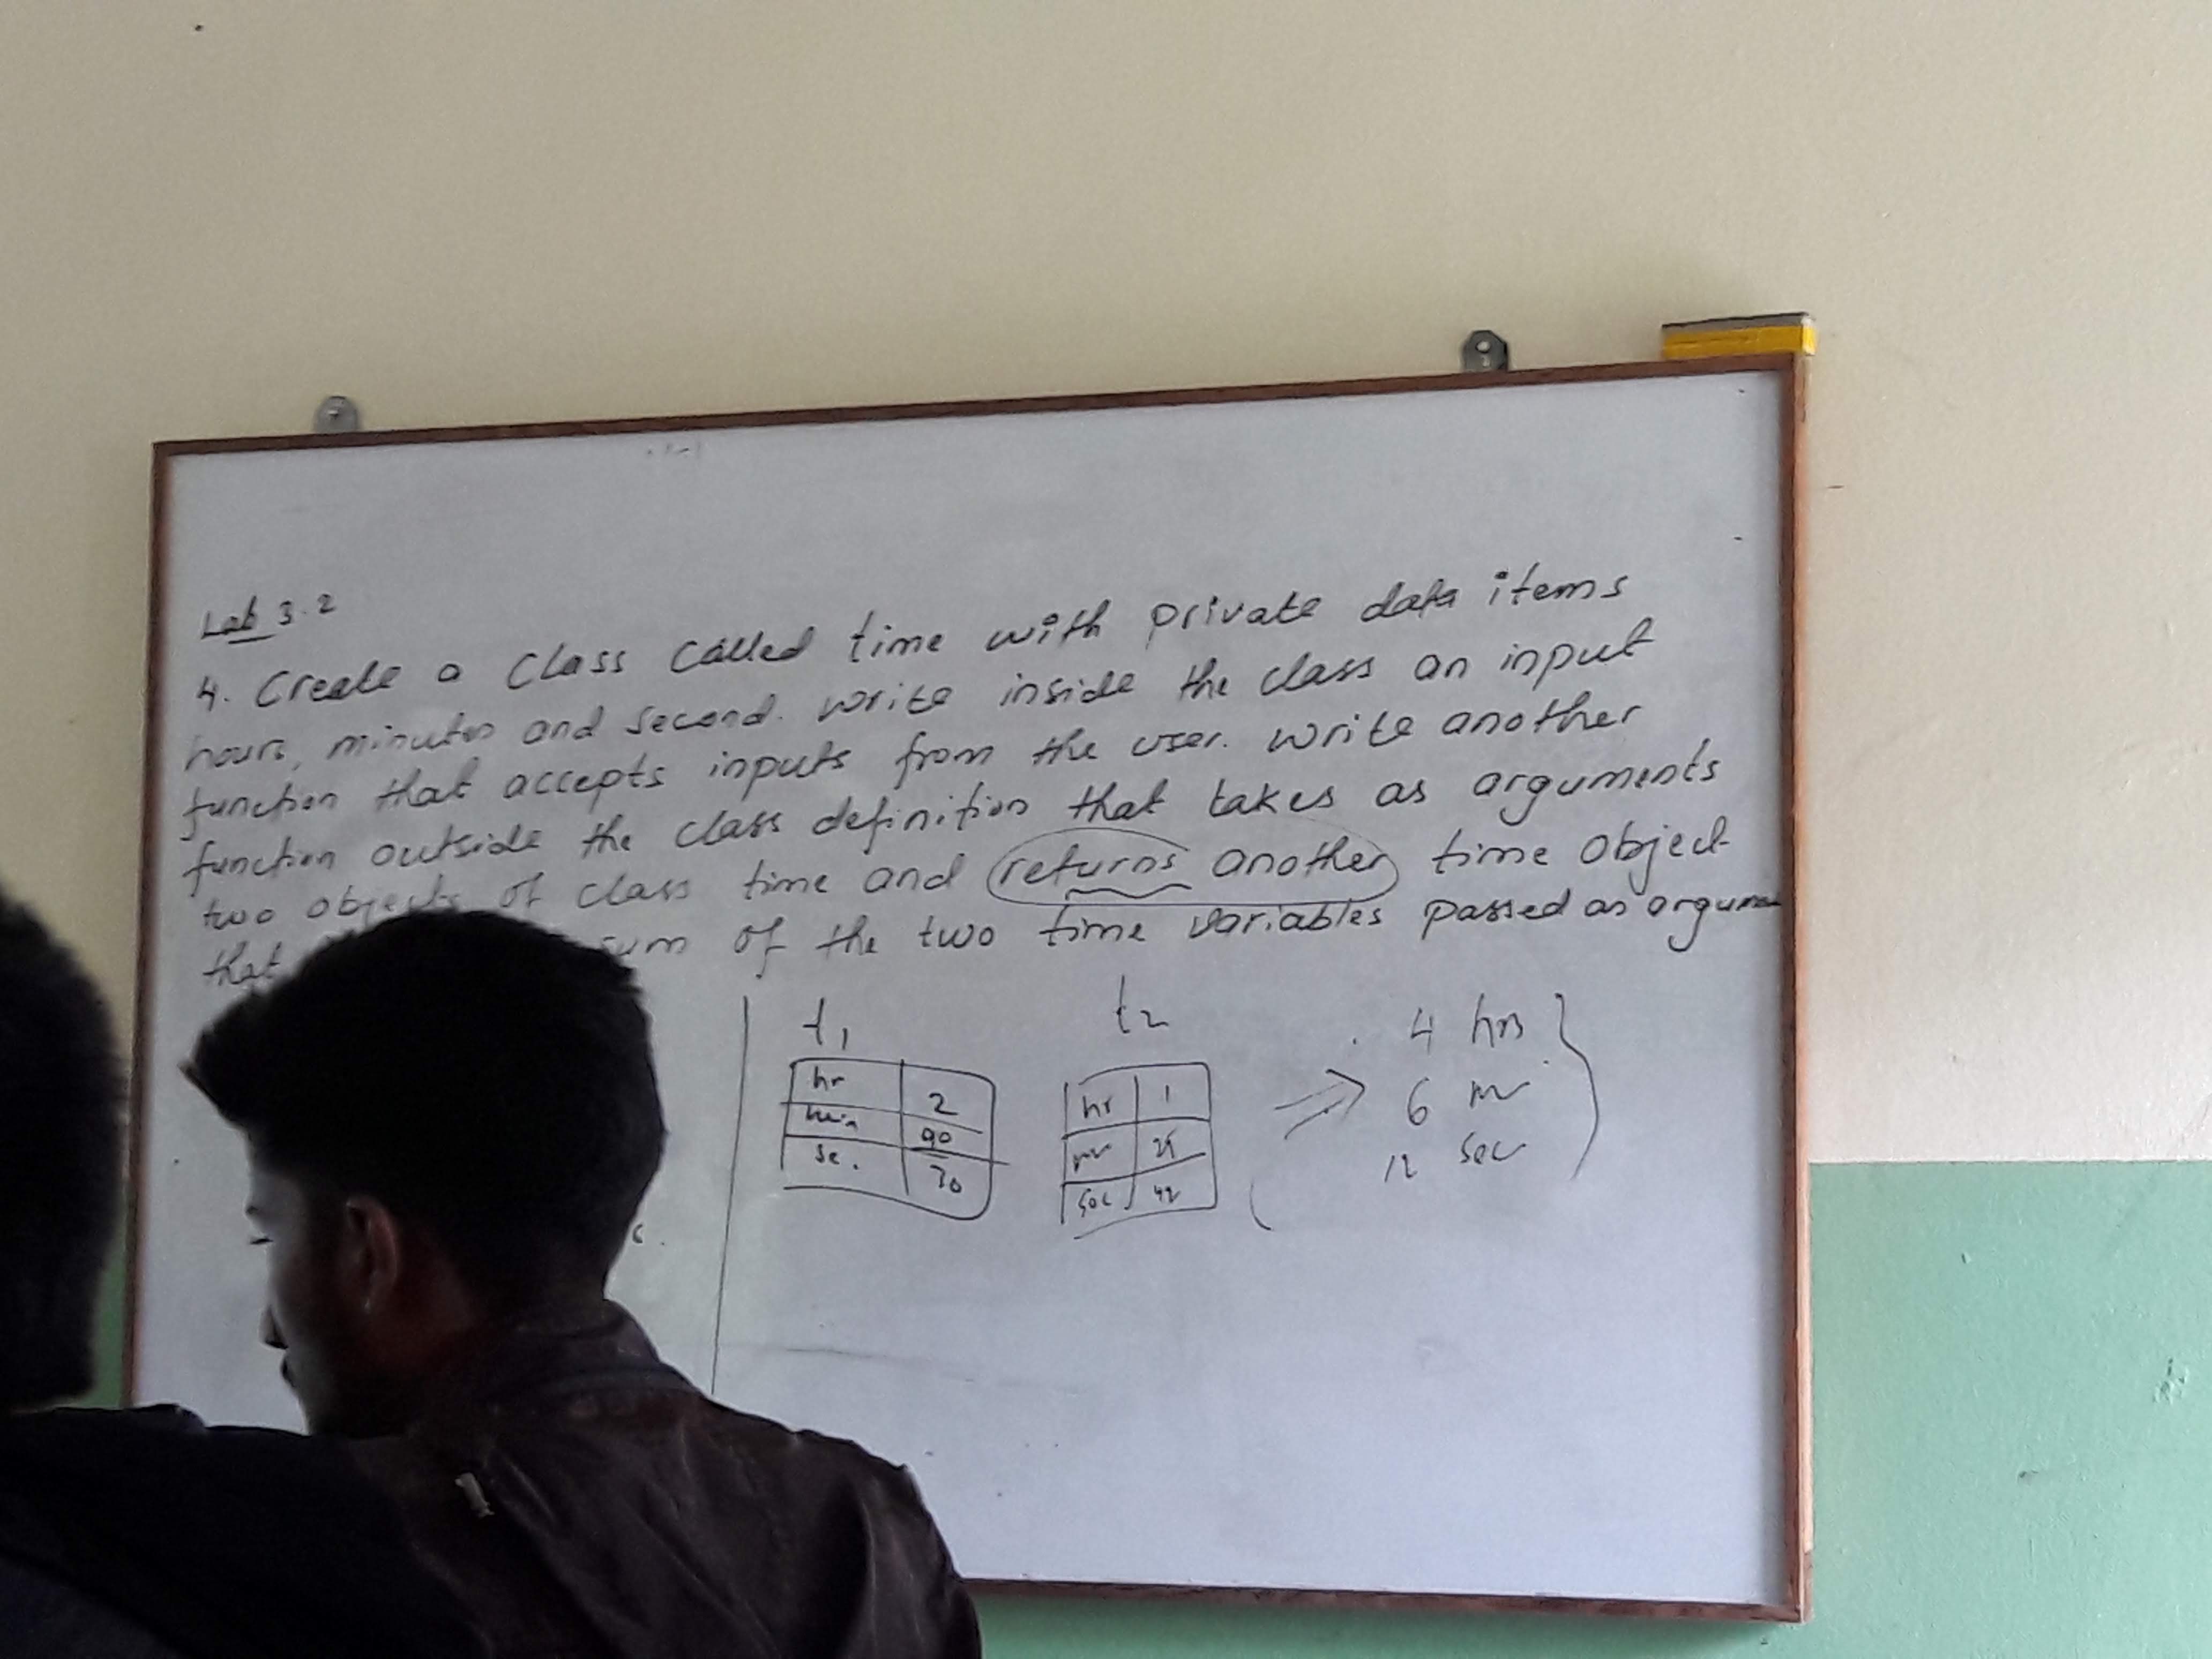 Lab 3.2
4. Create a Class Called time with private data items
hours, minutes and second. write inside the class an input
function that accepts inputs from the user. write another
function outside the class definition that takes as arguments
two objects of class time and returns another time object
that sum of the two time variables passed as argumen
t1
hr 2
min 90
se. 30
t2
hr 1
25
sec 42
4 hrs
6
12 sec